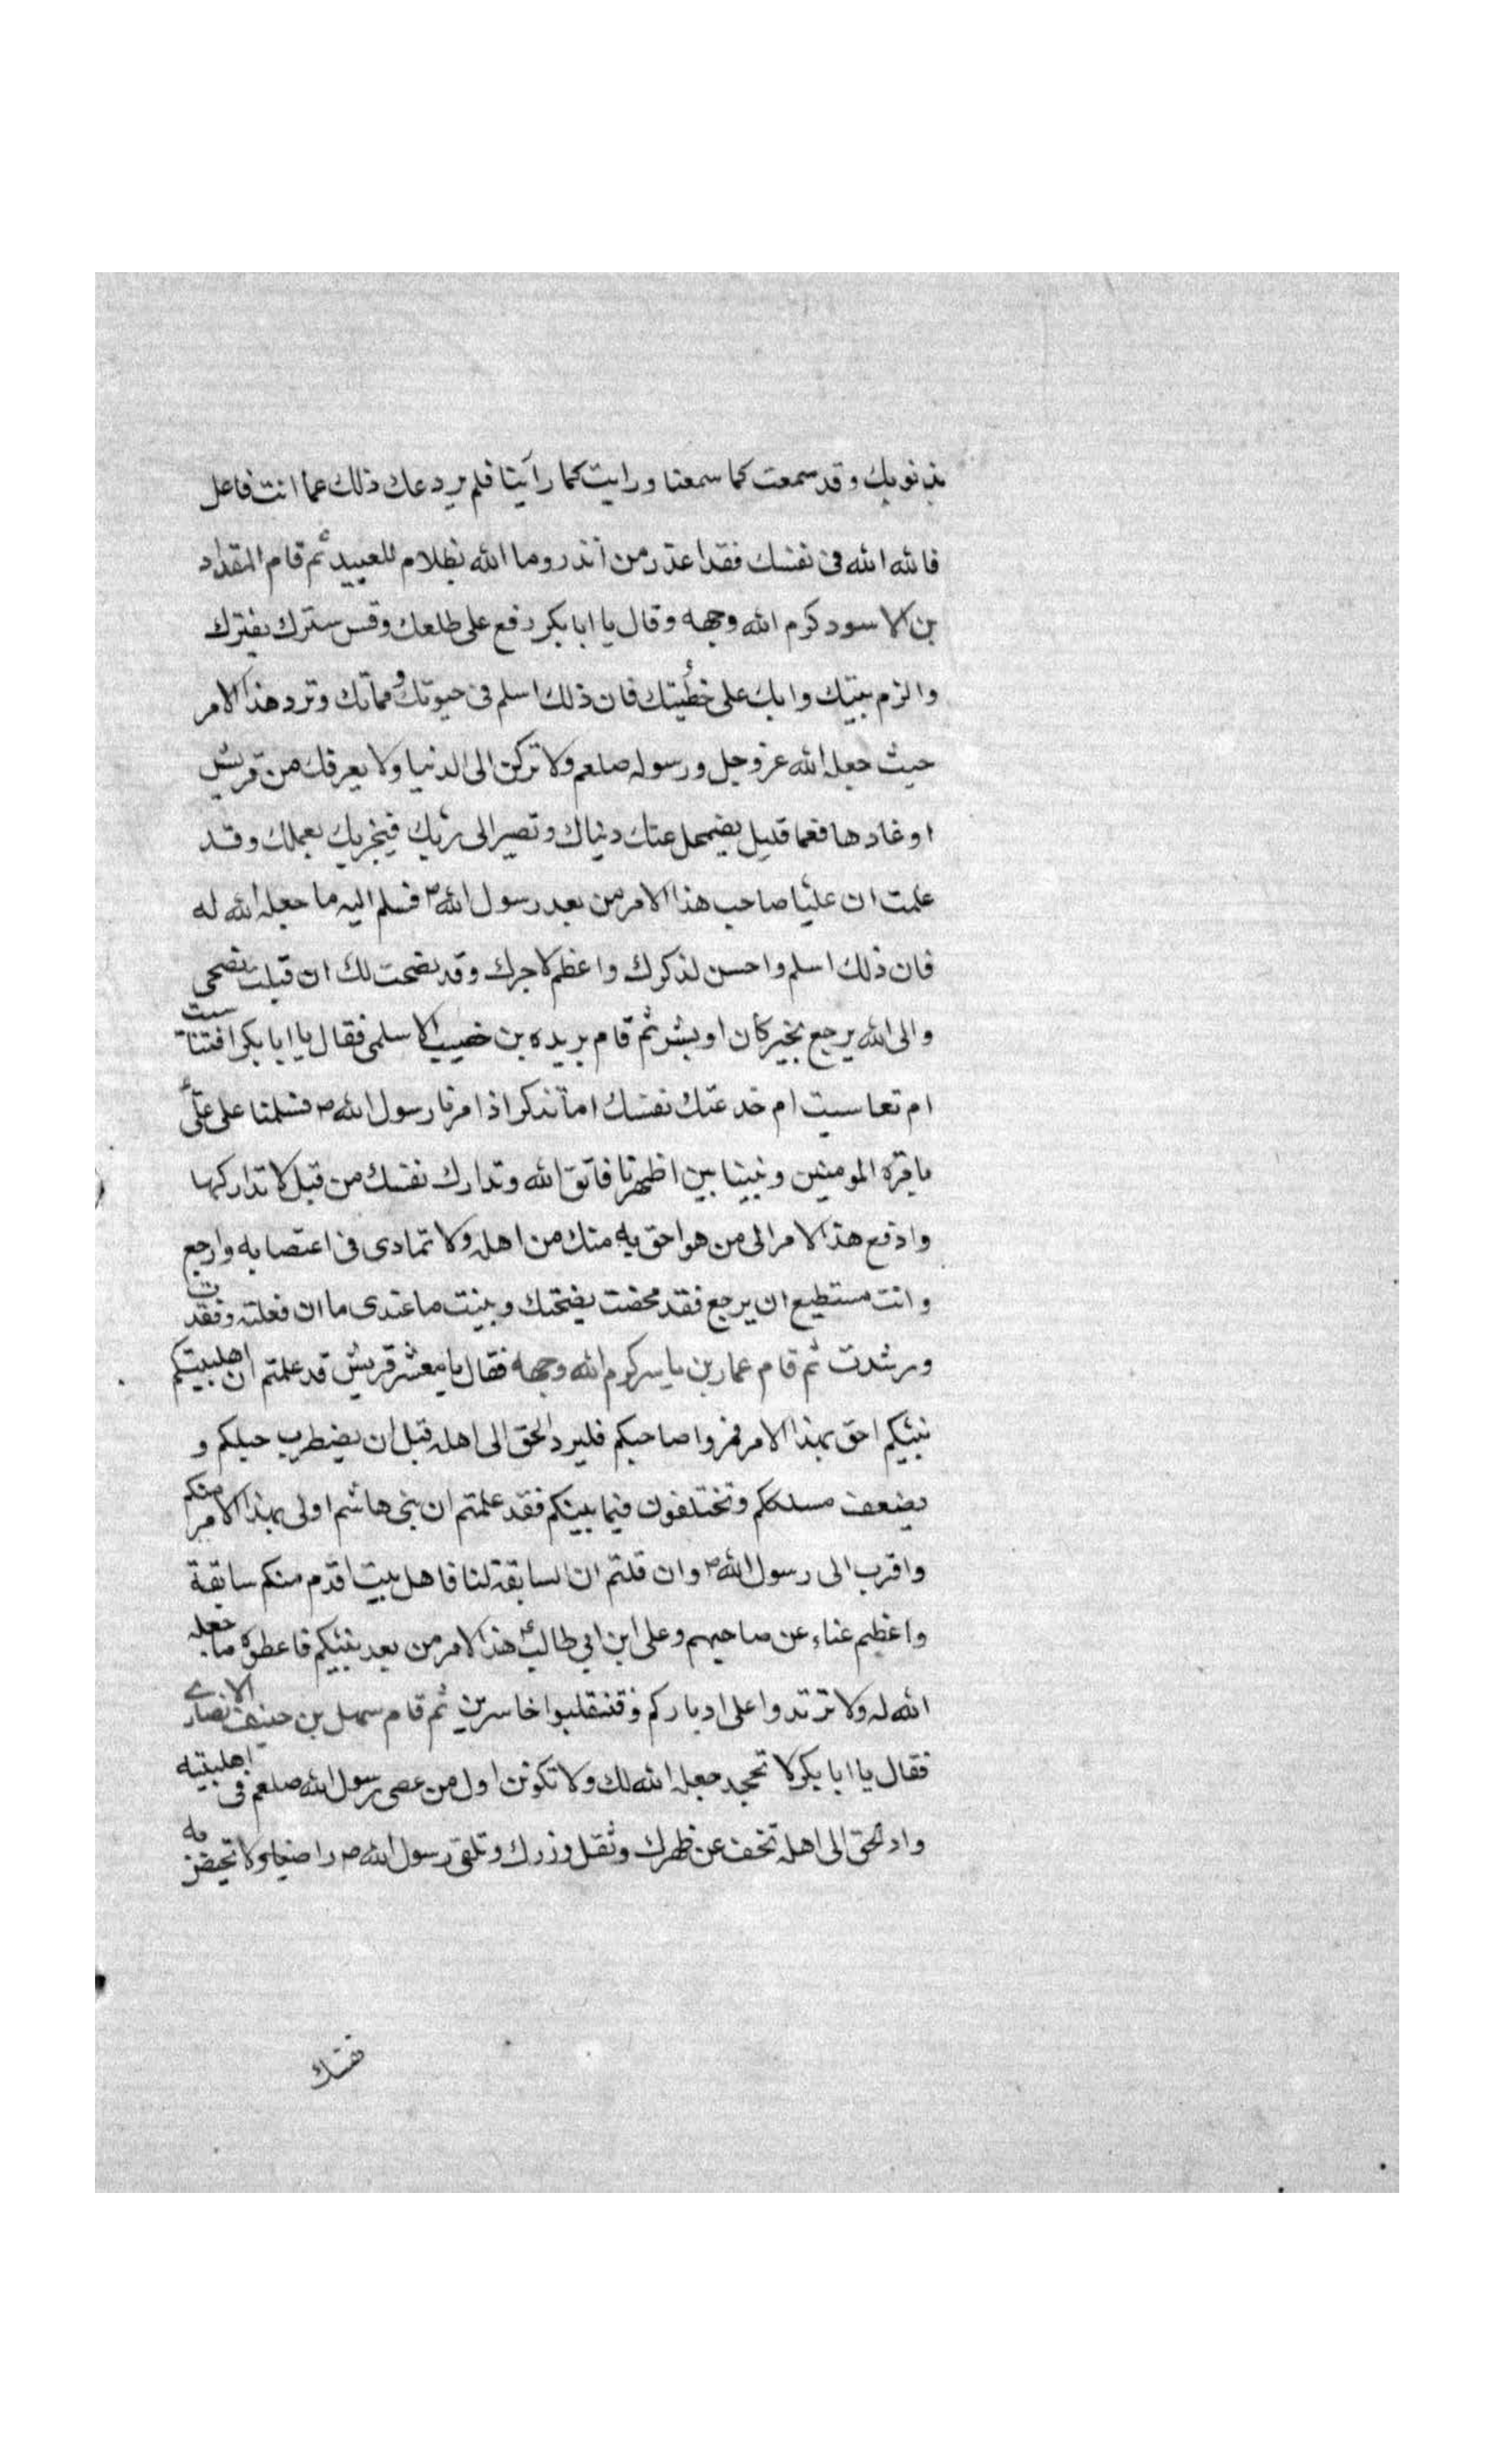 بذنوبك وقد سمعت كما سمعنا ورايت كما رآينا فلم يردعك ذلك عما انت فاعل
فالله الله فى نفسك فقد اعذر من انذر وما الله بظلام للعبيد ثم قام المقداد
بن الاسود كرم الله وجهه وقال يا ابا بكر رفع على طلعك وقس سترك بفترك
والزم بيتك وابك على خطيئتك فان ذلك اسلم فى حيوتك ومماتك وترد هذا الامر
حيث جعله الله عز وجل ورسوله صلعم ولا تركن الى الدنيا ولا يعرفك من قريش
اوغادها فعما قليل يضمحل عنك دنياك وتصير الى ربك فيجزيك بعملك وقد
علمت ان عليا صاحب هذا الامر من بعد رسول الله ص فسلم اليه ما جعله الله له
فان ذلك اسلم واحسن لذكرك واعظم لاجرك وقد نصحت لك ان قبلت نصحى
والى الله يرجع بخير كان او بشر ثم قام بريده بن خصيب الاسلمى فقال يا ابا بكر افتناسيت
ام تعاسيت ام خدعتك نفسك اما تذكر اذ امرنا رسول الله ص فسلمنا على علىّ
بامره المومنين ونبينا بين اظهرنا فاتق الله وتدارك نفسك من قبل لا تداركها
وادفع هذا الامر الى من هو احق به منك من اهله ولا تمادى فى اعتصابه وارجع
وانت مستطيع ان يرجع فقد محضت نصحتك وبينت ما عندى ما ان فعلته وفقدت
ورشدت ثم قام عمار بن ياسر كرم الله وجهه فقال يا معشر قريش قد علمتم ان اهلبيتكم
نبيكم احق بهذا الامر فمروا صاحبكم فليرد الحق الى اهله قبل ان يضطرب حبلكم و
يضعف مسلككم وتختلفون فيما بينكم فقد علمتم ان بنى هاشم اولى بهذا الامر منكم
واقرب الى رسول الله ص وان قلتم ان السابقة لنا فاهل بيت اقدم منكم سابقة
واعظيم غناء عن صاحبهم وعلى ابن ابي طالب هذا الامر من بعد نبيكم فاعطوه ما جعله
الله له ولا ترتدوا على ادباركم فتنقلبوا خاسرين ثم قام سهل بن حنيف الانصارى
فقال يا ابا بكر لا تجحد جعله الله لك ولا تكونن اول من عصى رسول الله صلعم فى اهلبيته
واد الحق الى اهله تخف عن ظهرك وثقل وزرك وتلقى رسول الله ص راضيا ولا تحيض به
نفسك